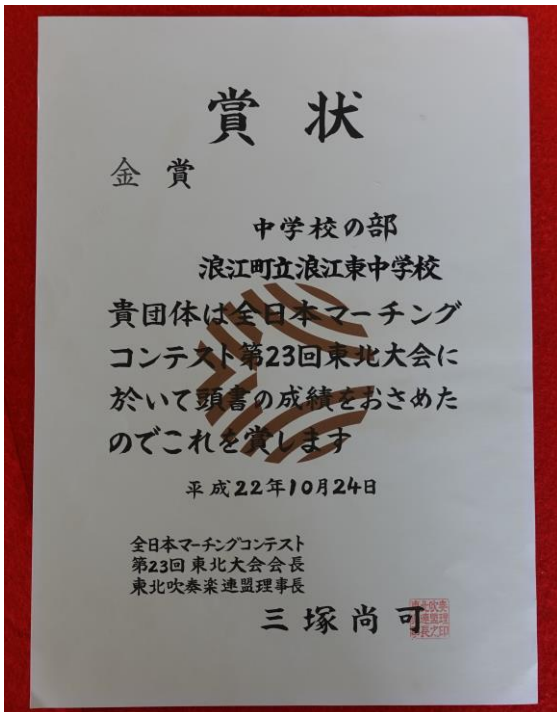 賞状
金賞
中学校の部
浪江町立浪江東中学校
貴団体は全日本マーチング
コンテスト第23回東北大会に
於いて頭書の成績をおさめた
のでこれを賞します
平成22年10月24日
全日本マーチングコンテスト
第23回東北大会会長
東北吹奏楽連盟理事長
三塚尚可